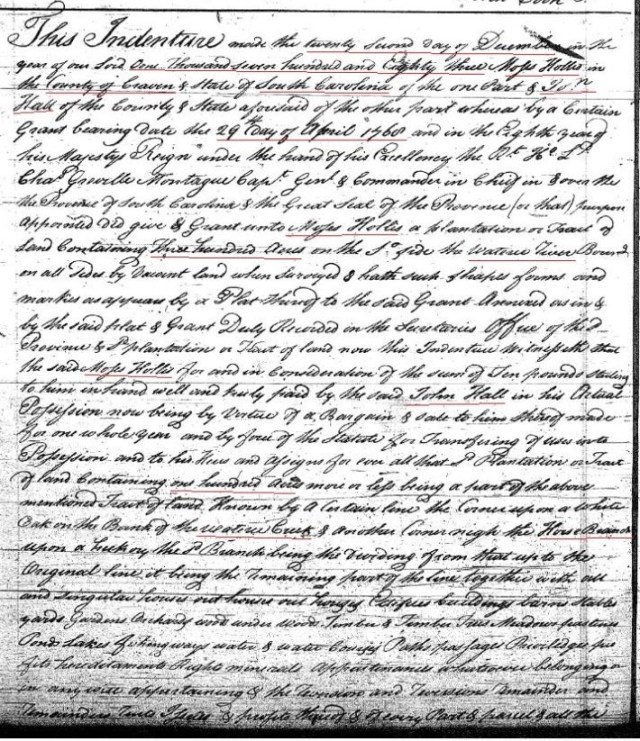 This Indenture made the twenty second day of December in the
year of our Lord One Thousand seven hundred and Eighty three Moses Hollis in
the County of Craven & State of South Carolina of the one Part & Jon
Hall of the County & State aforesaid of the other part whereas by a Certain
Grant bearing date the 29th day of April 1768 and in the Eighth year of
his Majestys Reign under the hand of his Excellency the Rt. He. Ld.
Chas. Greville Montague Capt. Genl. & Commander in Chief in & over the
the Province of South Carolina & the Great Seal of the Province (or that) purpose
Appointed did give & Grant unto Moses Hollis a plantation or Tract of
Land Containing three hundred Acres on the So. side the Wateree River Bound
on all sides by Vacant land when Surveyed & hath such shapes forms and
markes as appears by a Plat thereof to the said Grant Annexed as in &
by the said plat & Grant Duly Recorded in the Secretaries Office of the
Province & Sd. plantation or Tract of land now this Indenture Witnesseth that
the said Moses Hollis for and in Consideration of the sum of Ten pounds Sterling
to him in hand well and truly paid by the said John Hall in his Actual
Possession now being by Virtue of a Bargain & sale to him thereof made
for one whole year and by force of the Statute for Transfering of uses into
Possession and to his Heirs and Assigns for ever all that Sd. Plantation or Tract
of land Containing one hundred Acres more or less being a part of the above
mentioned Tract of land Known by a Certain line the Corner upon a White
Oak on the Bank of the Wateree Creek & Another Corner nigh the Horse Branch
upon a hickory the Sd. Branch being the Dividing from that up to the
Original line it being the remaining part of the line together with all
and singular houses out houses out houses Edifices buildings barns stables
yards Gardens Orchards wood under Wood Timber & Timber Trees Meadows pastures
Ponds Lakes fishing ways water & water Courses Paths passages Priviledges pro
fits hereditaments Rights minerals Appurtenances whatsoever belonging or
in any wise appertaining & the Reversion and Reversions Remainder and
Remainders Rents Issues & profits thereof & Every Part & parcel & all the